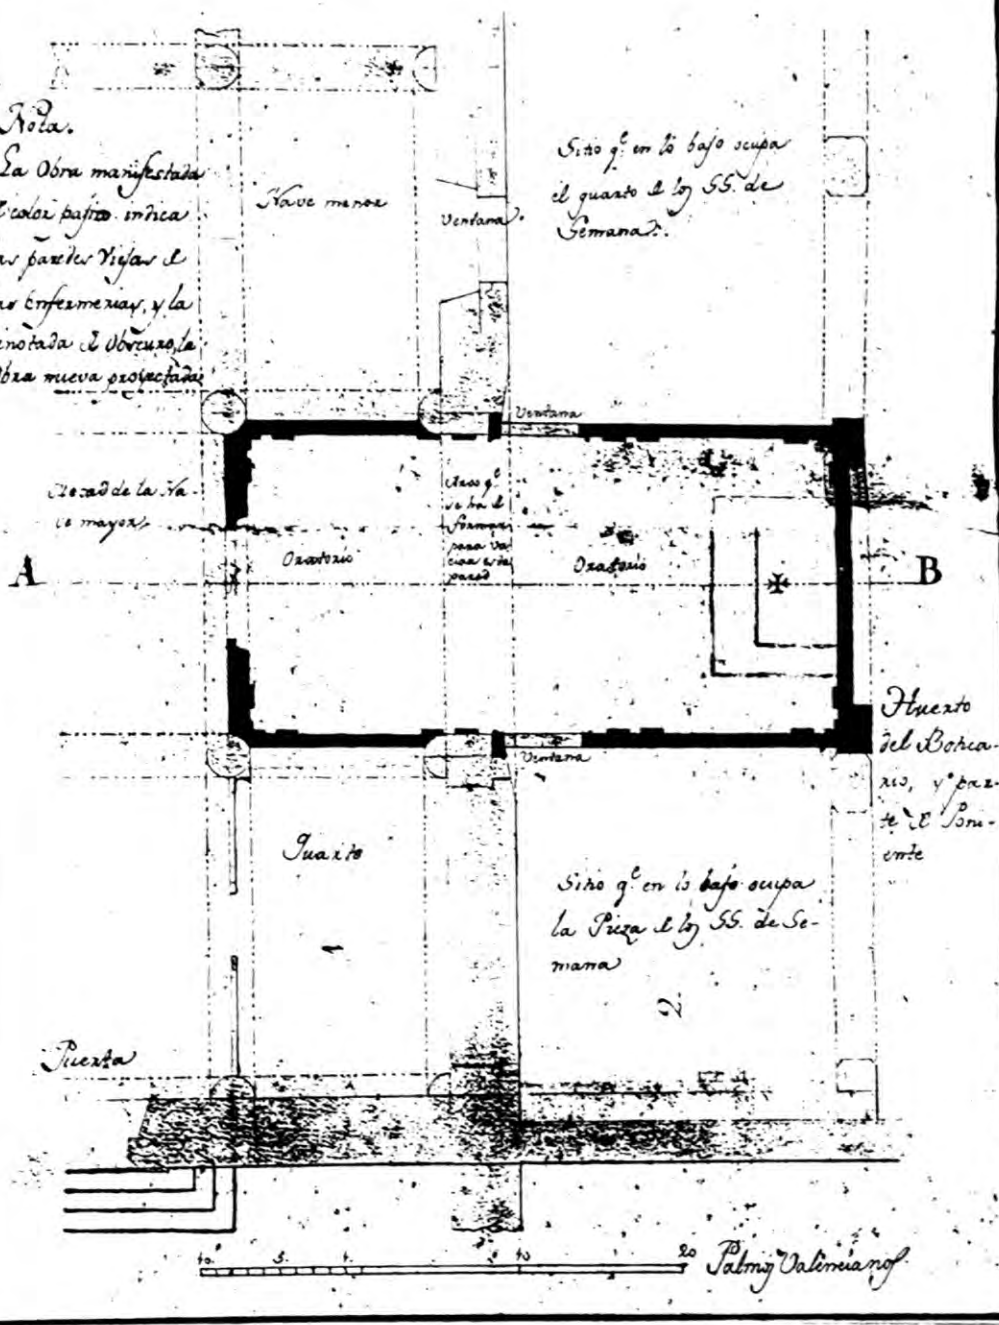 Nota.
La Obra manifestada
color pajizo indica
as paredes Viejas d
as Enfermerias, y la
notada d Obscuro, la
obra nueva proyectada
Nave menor
Ventana.
Sitio q.e en lo bajo ocupa
el quarto d los SS. de
Semana.
Ventana
Mitad de la Na-
ve mayor
Arco q.e
se ha d
formar
para va
ciar esta
pared
Oratorio
Oratorio
A
B
Ventana
Huerto
del Botica-
rio, y par-
te d Poni-
ente
Quarto
1
Sitio q.e en lo bajo ocupa
la Pieza d los SS. de Se-
mana
2.
Puerta
10 5. 1. 10 20
Palmos Valencianos.